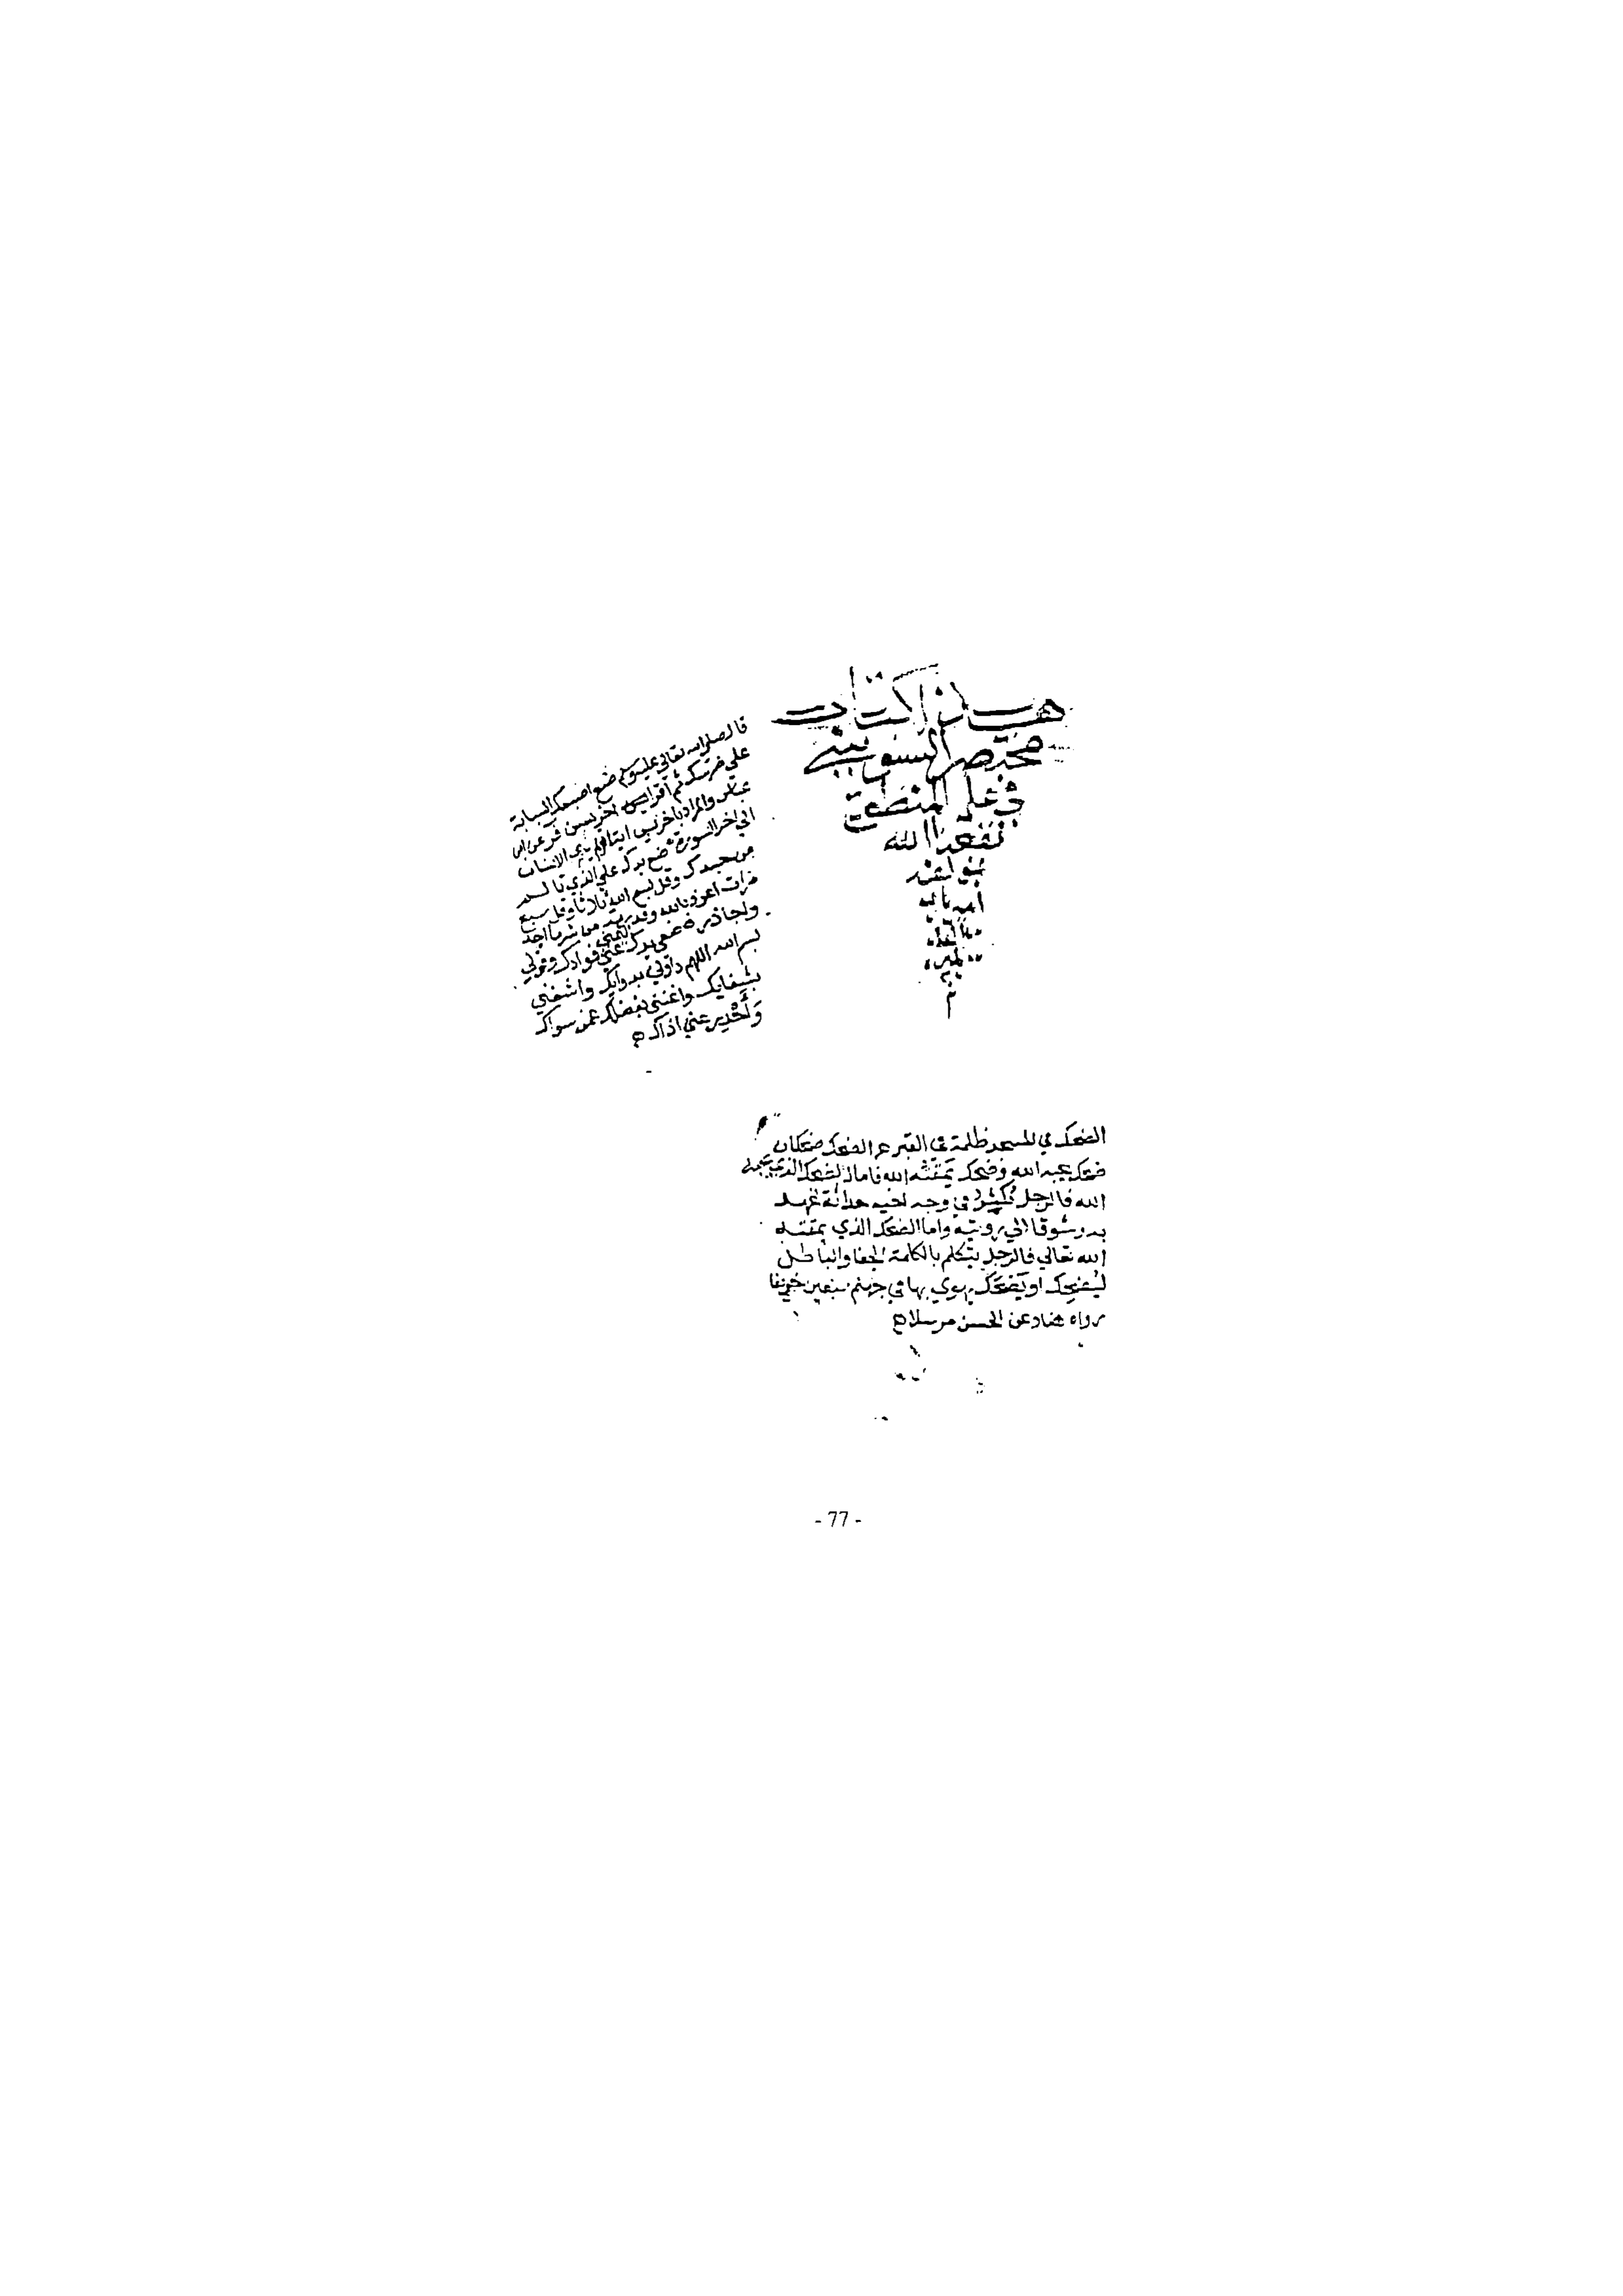 هذا كتاب
مختصر السنوسي
في علم المنطق
نفعنا الله
به امين
م
قال صلى الله تعالى عليه وسلم ضع اصبعك السبابة
على ضرسك ثم اقرا اخر يس فر عن ابن
عباس والمراد باخر يس اولم ير الانسان
الى اخر السورة ضع يدك على الذي تالم
من جسدك وقل بسم الله ثلاثا وقل سبع
مرات اعوذ بالله وقدرته من شر ما اجد
واحاذر ضعي يدك على فوادك وقولي
بسم الله اللهم داوني بدوايك واشفني
بشفايك واغنني بفضلك عمن سواك
وَاَحْدِر عني اذاك ه
الضحك في المسجد ظلمة في القبر الضحك ضحكان
ضحك يحبه الله وضحك يمقته الله فاما الضحك الذي يحبه
الله فالرجل يكشر في وجه اخيه حداثة عهد
به وشوقا الى رويته واما الضحك الذي يمقته
الله تعالي فالرجل يتكلم بالكلمة الجفا والباطل
ليُضحِك او يَضحَك يهوي بها في جهنم سبعين خريفا
رواه هناد عن الحسن مرسلا ه
- 77 -